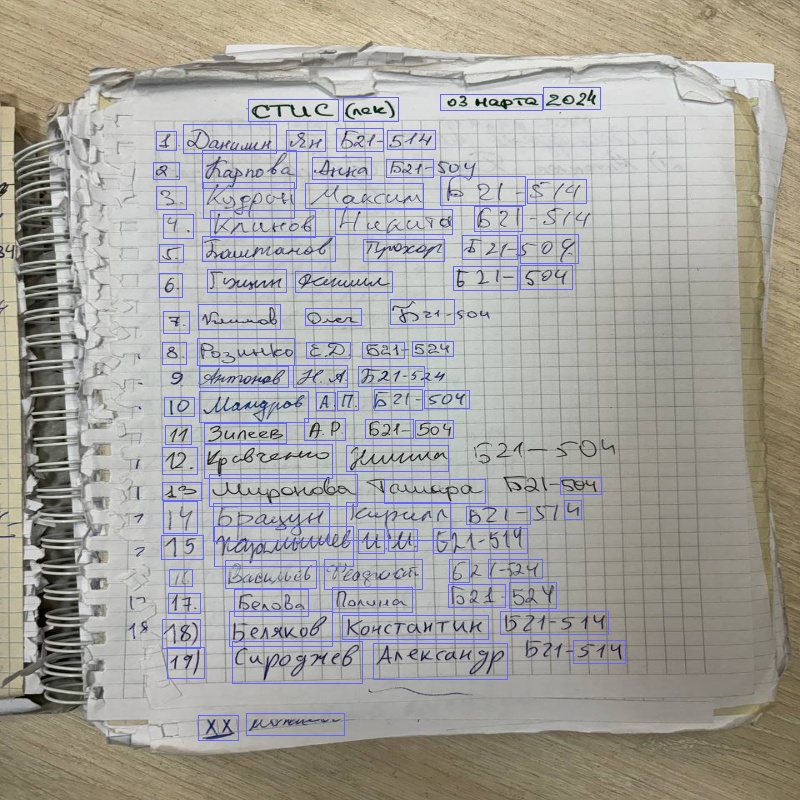 СТИС (лек) 03 марта 2024
1 Данилин Ян Б21-514
2. Карпова Анна Б21-504
3. Кудрон Максим Б21-514
4. Клинов Никита Б21-514
5. Баштанов Прохор Б21-504
6. Б21-504
7. Климов Олег Б21-504
8. Розинко Е.Д. Б21-524
9 Антонов Н.А. Б21-524
10 Мандров А.П. Б21-504
11 Зилеев А.Р. Б21-504
12. Кравченко Б21-504
13 Миронова Тамара Б21-504
14 Кирилл Б21-514
15 Кармышев И И Б21-514
16 Васильев Б21-524
17 17. Белова Полина Б21-524
18 18) Беляков Константин Б21-514
19) Сироджев Александр Б21-514
XX